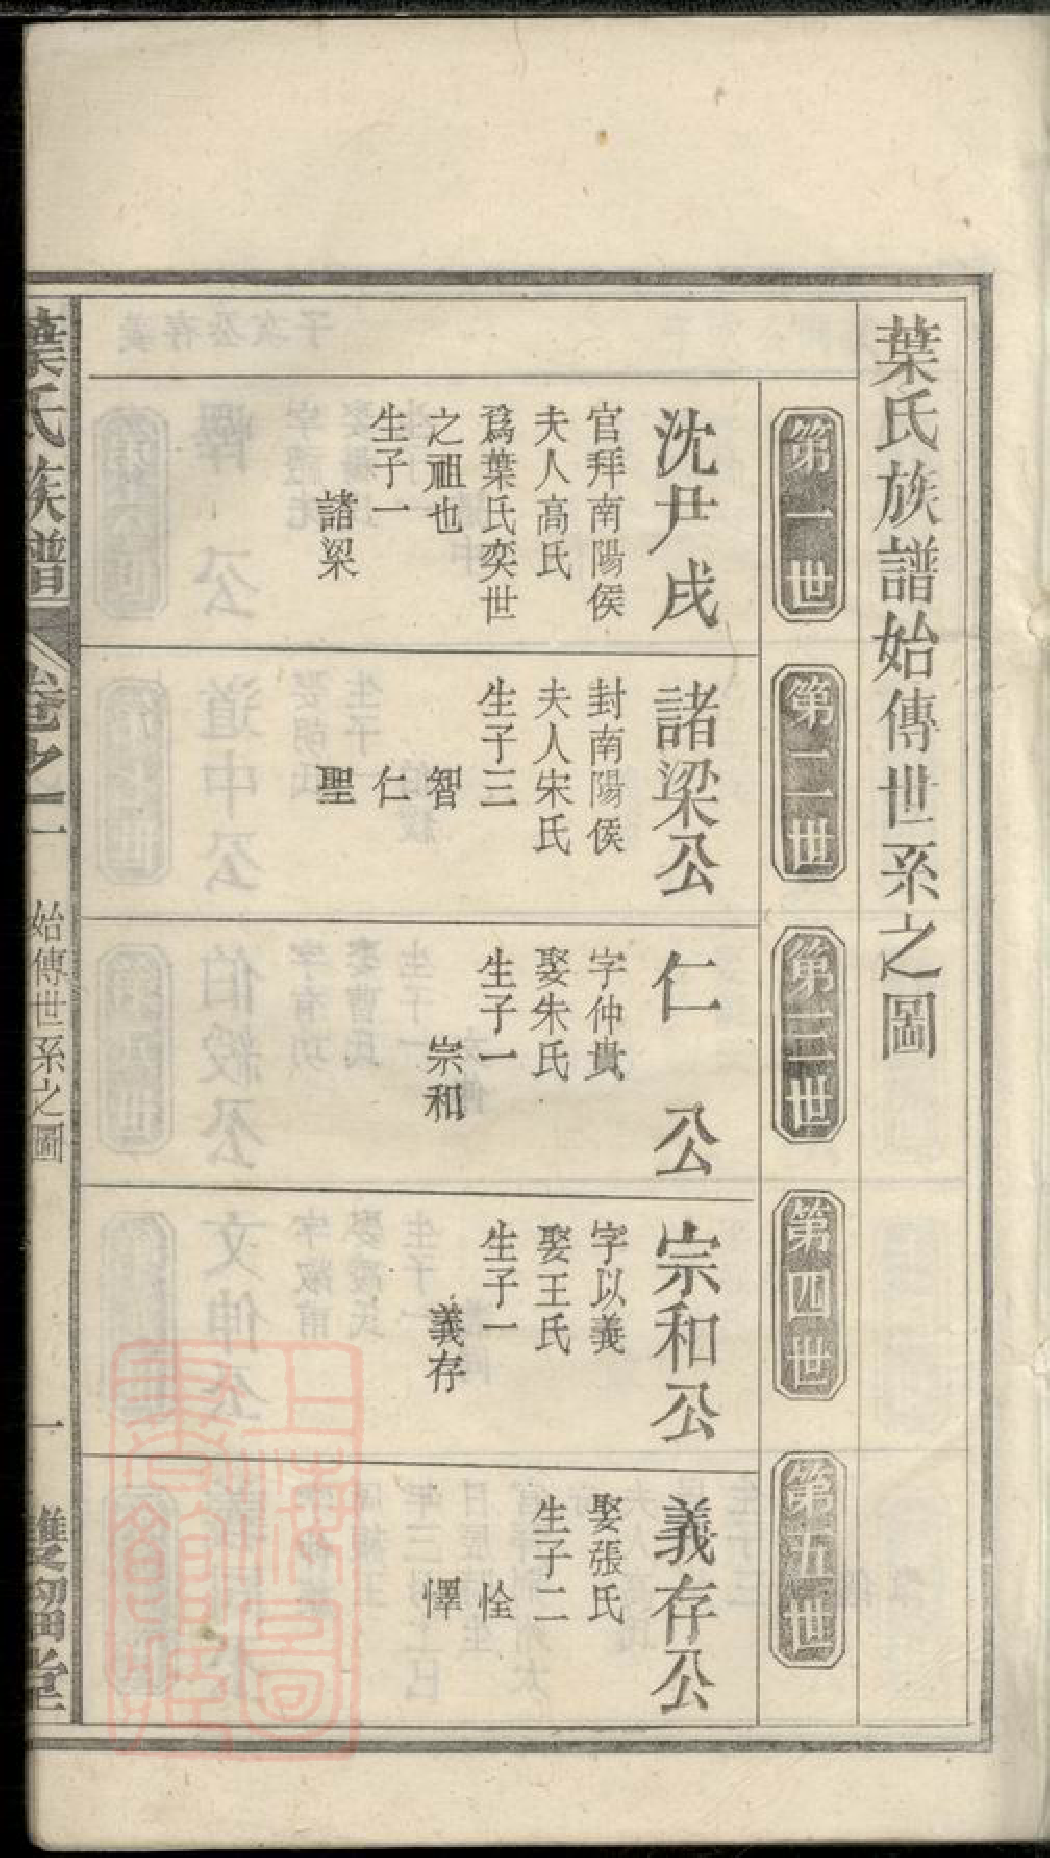 葉氏族譜始傳世系之圖
第一世
沈尹戌
官拜南陽侯
夫人高氏
爲葉氏奕世
之祖也
生子一
諸梁
第二世
諸梁公
封南陽侯
夫人宋氏
生子三
智
仁
聖
第三世
仁公
字仲貴
娶朱氏
生子一
宗和
第四世
宗和公
字以義
娶王氏
生子一
義存
第五世
義存公
娶張氏
生子二
恮
懌
葉氏族譜
卷之一
始傳世系之圖
一
雙瑠堂
上海圖書館藏